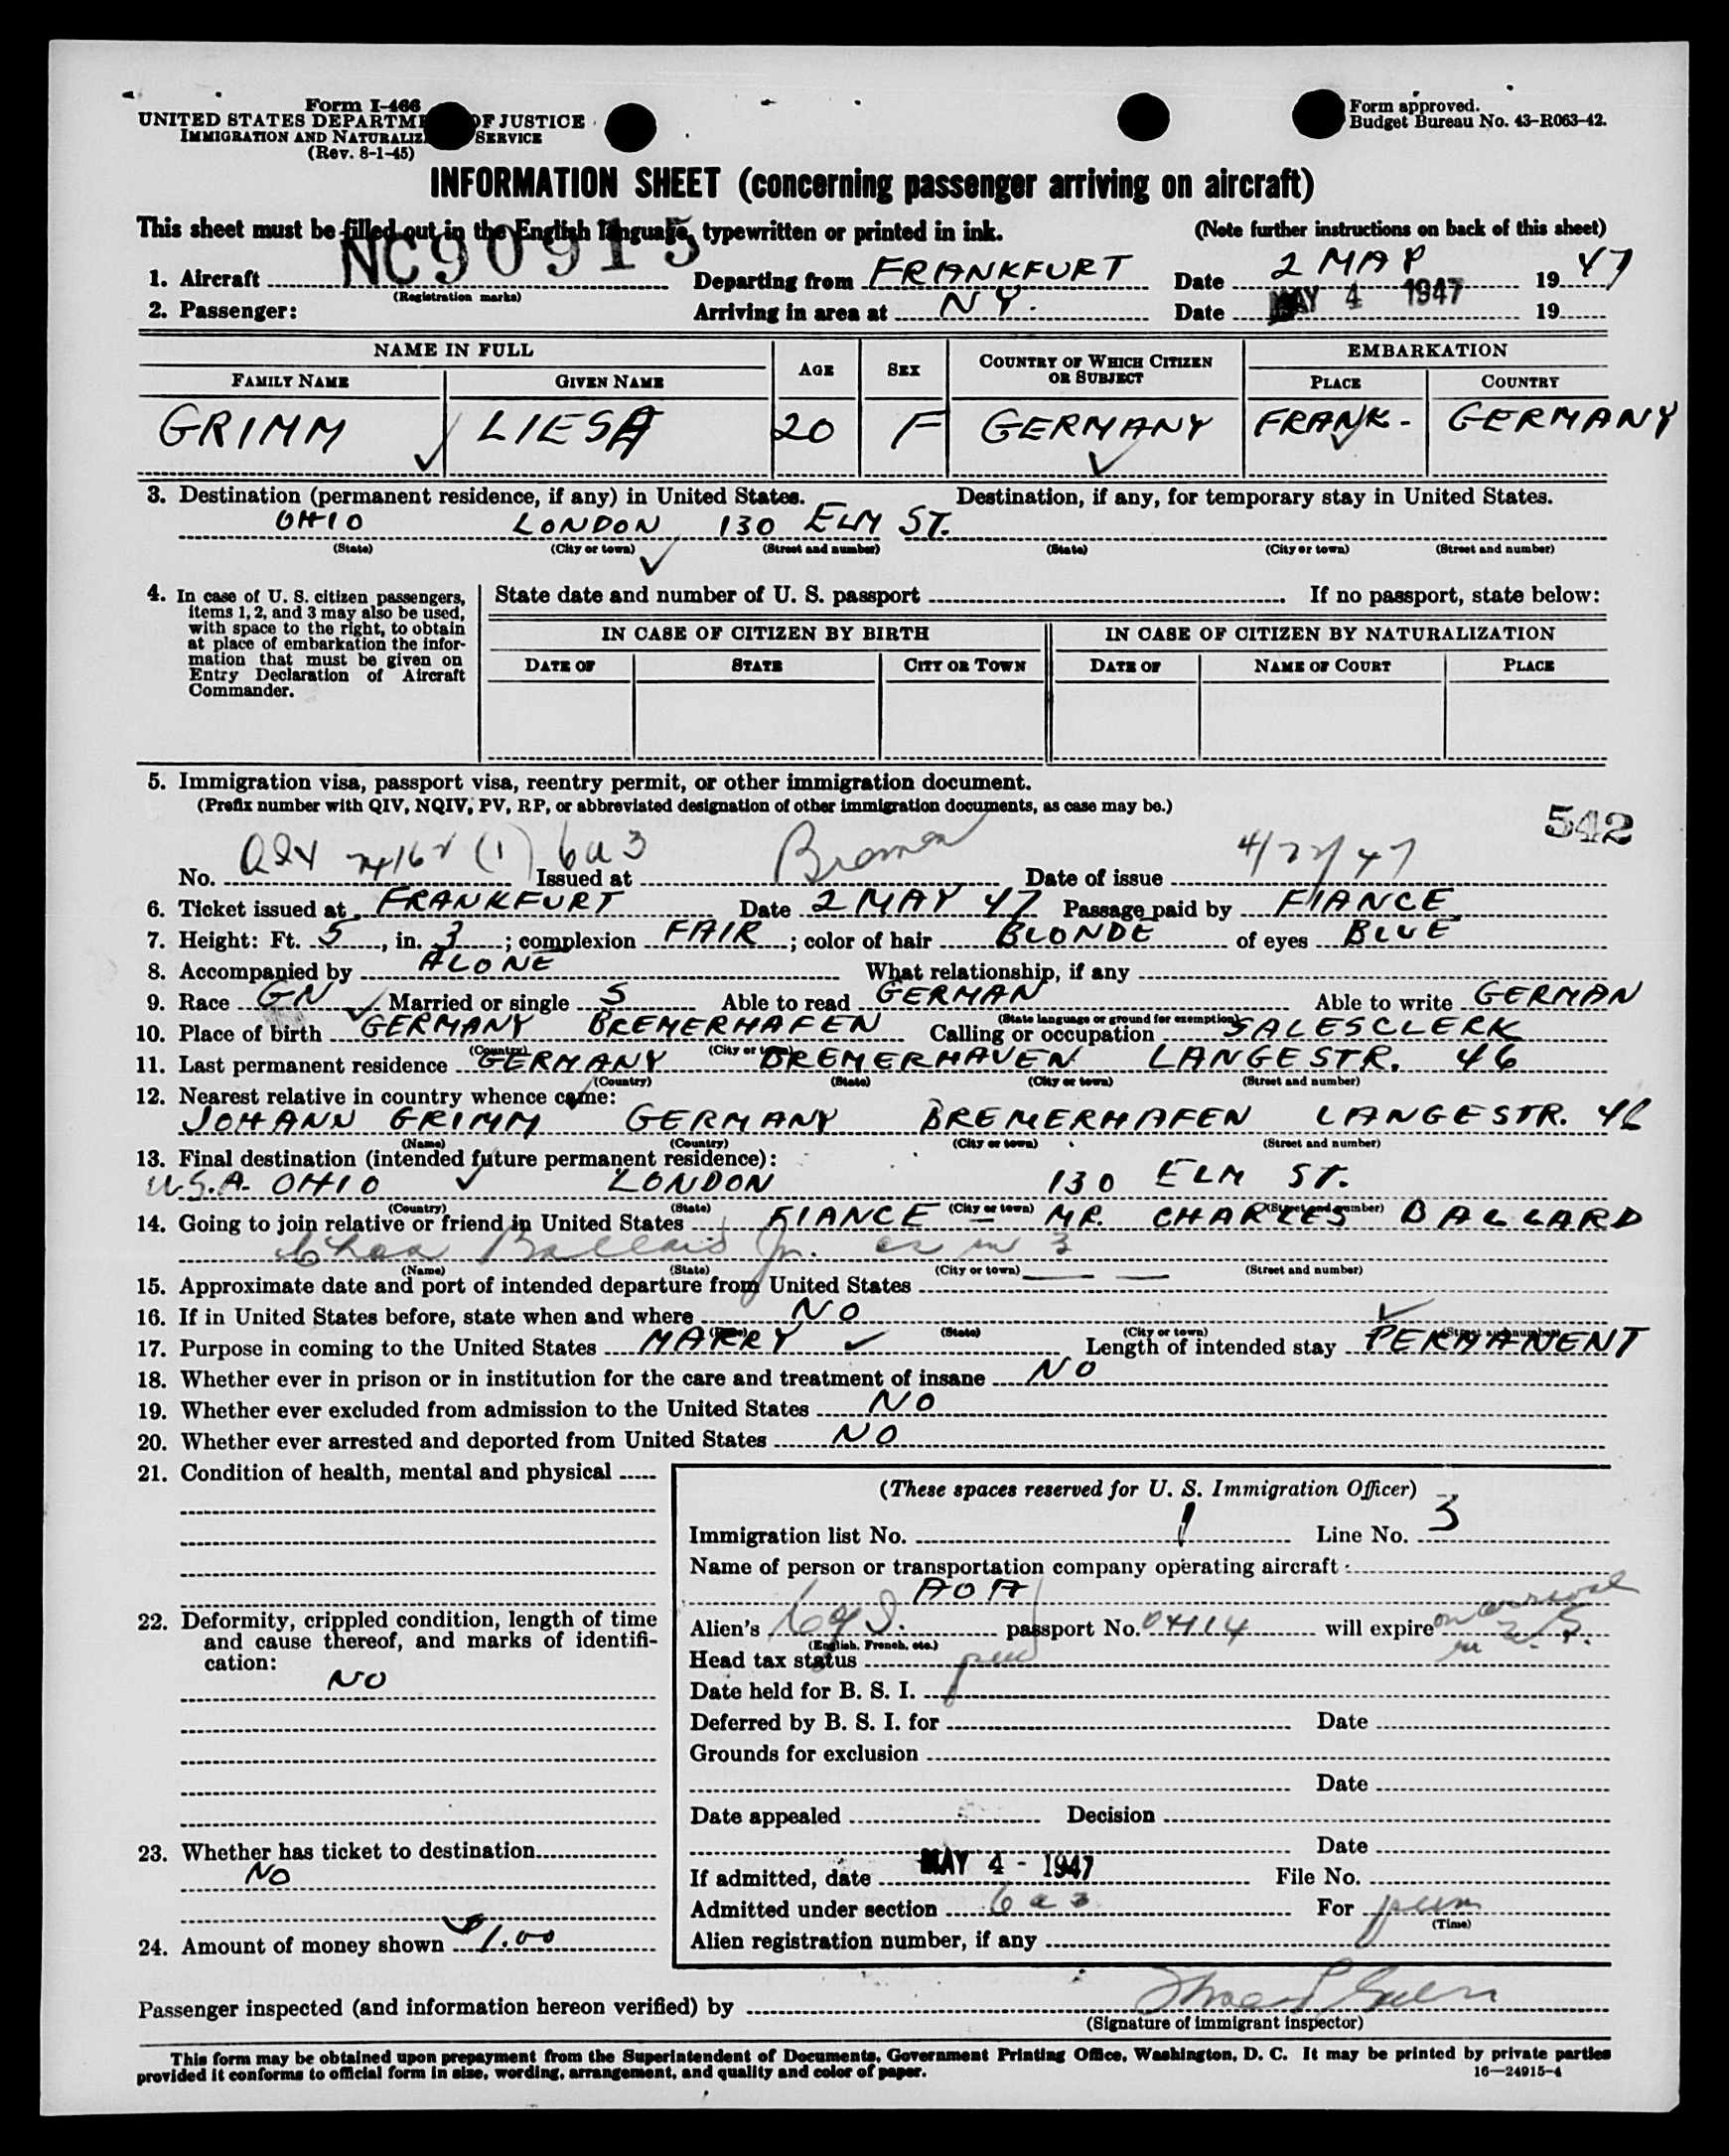 Form I-466
UNITED STATES DEPARTME OF JUSTICE
IMMIGRATION AND NATURALIZ SERVICE
(Rev. 8-1-45)
Form approved.
Budget Bureau No. 43-R063-42.
INFORMATION SHEET (concerning passenger arriving on aircraft)
This sheet must be filled out in the English language, typewritten or printed in ink. (Note further instructions on back of this sheet)
1. Aircraft NC90915 Departing from FRANKFURT Date 2 MAY 1947
(Registration marks)
2. Passenger: Arriving in area at N Y. Date MAY 4 1947 19
NAME IN FULL AGE SEX COUNTRY OF WHICH CITIZEN OR SUBJECT EMBARKATION
FAMILY NAME GIVEN NAME PLACE COUNTRY
GRIMM LIESA 20 F GERMANY FRANK- GERMANY
3. Destination (permanent residence, if any) in United States. Destination, if any, for temporary stay in United States.
OHIO LONDON 130 ELM ST.
(State) (City or town) (Street and number) (State) (City or town) (Street and number)
4. In case of U. S. citizen passengers,
items 1, 2, and 3 may also be used,
with space to the right, to obtain
at place of embarkation the infor-
mation that must be given on
Entry Declaration of Aircraft
Commander.
State date and number of U. S. passport If no passport, state below:
IN CASE OF CITIZEN BY BIRTH IN CASE OF CITIZEN BY NATURALIZATION
DATE OF STATE CITY OR TOWN DATE OF NAME OF COURT PLACE
5. Immigration visa, passport visa, reentry permit, or other immigration document.
(Prefix number with QIV, NQIV, PV, RP, or abbreviated designation of other immigration documents, as case may be.)
542
No. (1) 6a3 Issued at Bremen Date of issue 4/22/47
6. Ticket issued at FRANKFURT Date 2 MAY 47 Passage paid by FIANCE
7. Height: Ft. 5, in. 3; complexion FAIR; color of hair BLONDE of eyes BLUE
8. Accompanied by ALONE What relationship, if any
9. Race GN Married or single S Able to read GERMAN Able to write GERMAN
(State language or ground for exemption)
10. Place of birth GERMANY BREMERHAFEN Calling or occupation SALESCLERK
(Country) (City or town)
11. Last permanent residence GERMANY BREMERHAVEN LANGESTR. 46
(Country) (State) (City or town) (Street and number)
12. Nearest relative in country whence came:
JOHANN GRIMM GERMANY BREMERHAFEN LANGESTR. 46
(Name) (Country) (City or town) (Street and number)
13. Final destination (intended future permanent residence):
U.S.A. OHIO LONDON 130 ELM ST.
(Country) (State) (City or town) (Street and number)
14. Going to join relative or friend in United States FIANCE – MR. CHARLES BALLARD
Chas Ballard Jr. as in 3
(Name) (State) (City or town) (Street and number)
15. Approximate date and port of intended departure from United States
16. If in United States before, state when and where NO
(Date) (State) (City or town) (Street and number)
17. Purpose in coming to the United States MARRY Length of intended stay PERMANENT
18. Whether ever in prison or in institution for the care and treatment of insane NO
19. Whether ever excluded from admission to the United States NO
20. Whether ever arrested and deported from United States NO
21. Condition of health, mental and physical
22. Deformity, crippled condition, length of time
and cause thereof, and marks of identifi-
cation:
NO
23. Whether has ticket to destination
NO
24. Amount of money shown 1.00
(These spaces reserved for U. S. Immigration Officer)
Immigration list No. 1 Line No. 3
Name of person or transportation company operating aircraft
AOA
Alien's passport No. 04114 will expire on arrival
in U.S.
(English, French, etc.)
Head tax status
Date held for B. S. I.
Deferred by B. S. I. for Date
Grounds for exclusion
Date
Date appealed Decision
Date
If admitted, date MAY 4 - 1947 File No.
Admitted under section 6a3 For perm
(Time)
Alien registration number, if any
Passenger inspected (and information hereon verified) by
(Signature of immigrant inspector)
This form may be obtained upon prepayment from the Superintendent of Documents, Government Printing Office, Washington, D. C. It may be printed by private parties
provided it conforms to official form in size, wording, arrangement, and quality and color of paper. 16—24915-4